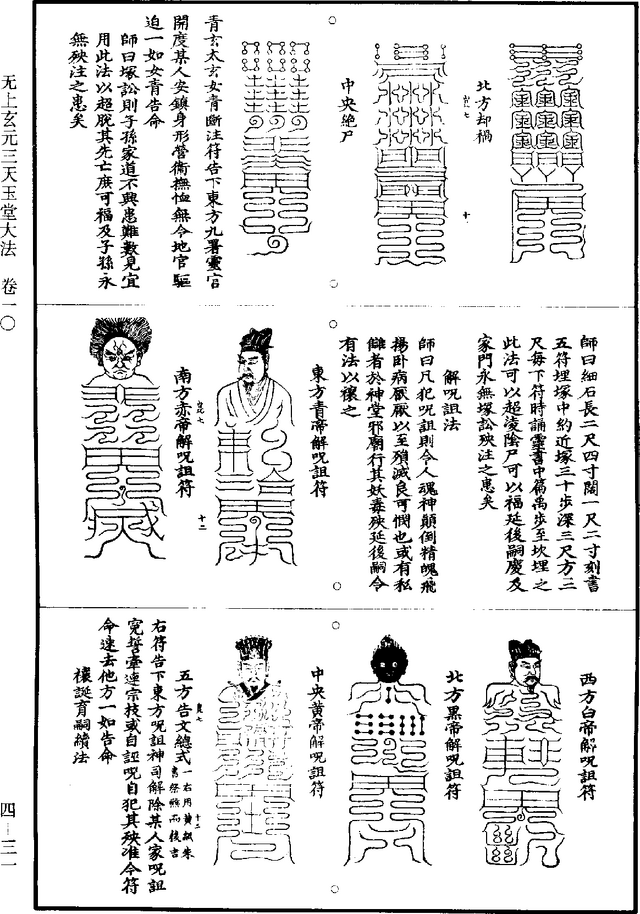 北方却禍
中央絶尸
青玄太玄女青斷注符告下東方九署靈官
開度某人安鎮身形營衛撫恤無令地官驅
迫一如女青告命
師曰塚訟則子孫家道不興患難數見宜
用此法以超脫其先亡庶可福及子孫永
無殃注之患矣
師曰細石長二尺四寸闊一尺二寸刻書
五符埋塚中約近塚三十步深三尺方二
尺每下符時誦靈書中篇禹步至坎埋之
此法可以超淩陰尸可以福延後嗣慶及
家門永無塚訟殃注之患矣
解呪詛法
師曰凡犯呪詛則令人魂神顛倒精魄飛
揚卧病厭厭以至殞滅良可憫也或有私
讎者於神堂邪廟行其妖毒殃延後嗣今
有法以禳之
東方青帝解呪詛符
南方赤帝解呪詛符
西方白帝解呪詛符
北方黑帝解呪詛符
中央黃帝解呪詛符
五方告文總式
右符告下東方呪詛神司解除某人家呪詛
冤誓牽連宗枝或自誣呪自犯其殃准令符
命速去他方一如告命
禳誕育嗣續法
无上玄元三天玉堂大法 卷一〇
四－三一